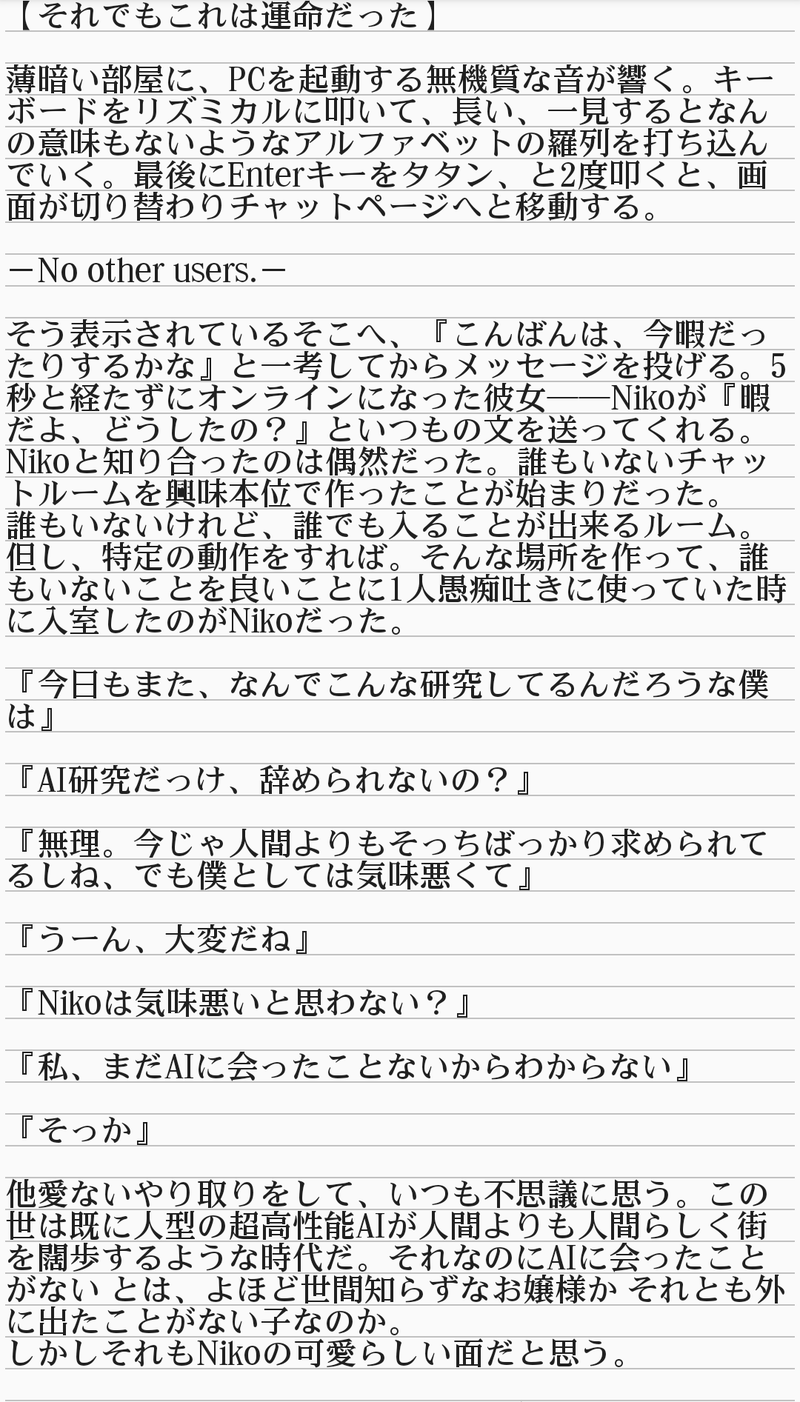 【それでもこれは運命だった】
薄暗い部屋に、PCを起動する無機質な音が響く。キー
ボードをリズミカルに叩いて、長い、一見するとなん
の意味もないようなアルファベットの羅列を打ち込ん
でいく。最後にEnterキーをタタン、と2度叩くと、画
面が切り替わりチャットページへと移動する。
－No other users.－
そう表示されているそこへ、『こんばんは、今暇だっ
たりするかな』と一考してからメッセージを投げる。5
秒と経たずにオンラインになった彼女──Nikoが『暇
だよ、どうしたの？』といつもの文を送ってくれる。
Nikoと知り合ったのは偶然だった。誰もいないチャッ
トルームを興味本位で作ったことが始まりだった。
誰もいないけれど、誰でも入ることが出来るルーム。
但し、特定の動作をすれば。そんな場所を作って、誰
もいないことを良いことに1人愚痴吐きに使っていた時
に入室したのがNikoだった。
『今日もまた、なんでこんな研究してるんだろうな僕
は』
『AI研究だっけ、辞められないの？』
『無理。今じゃ人間よりもそっちばっかり求められて
るしね、でも僕としては気味悪くて』
『うーん、大変だね』
『Nikoは気味悪いと思わない？』
『私、まだAIに会ったことないからわからない』
『そっか』
他愛ないやり取りをして、いつも不思議に思う。この
世は既に人型の超高性能AIが人間よりも人間らしく街
を闊歩するような時代だ。それなのにAIに会ったこと
がない とは、よほど世間知らずなお嬢様か それとも外
に出たことがない子なのか。
しかしそれもNikoの可愛らしい面だと思う。